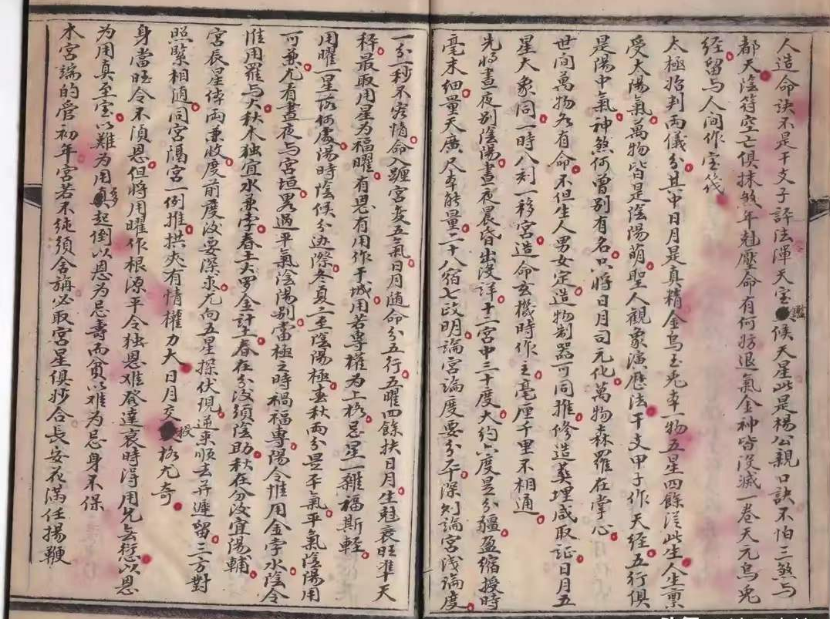 人造命訣不是干支子評法渾天宝鑑候天星此是楊公親口訣不怕三煞与
都天陰符空亡俱抹煞年尅壓命有何妨退氣金神皆没滅一卷天元烏兎
経留与人间作宝筏
太極殆判两儀分其中日月是真精金烏玉兎本一物五星四餘从此生人生禀
受太陽氣萬物皆是陰陽萌聖人觀象演應法干支甲子作天経五行俱
是陽中氣神煞何曽别有名只將日月司元化萬物森羅在掌心
世间萬物各有命不但生人男女定造物制器可同推修造葬埋咸取証日月五
星大象同一時八刻一移宮造命玄機時作主毫厘千里不相通
先將昼夜别陰陽昼夜晨昏出没詳十二宮中三十度大約六度是分疆盈縮授時
毫末細量天廣尺本能量二十八宿七政明論宮論度要分平深则論宮浅論度
一分一秒不容情命入纏宮変五氣日月随命分五行五曜四餘扶日月生尅衰旺準天
秤最取用星为福曜有恩有用作干城用若專權为上格忌星一雜福斯輕
用曜一星落何處陽時陰候分边際冬夏二至陰陽極春秋两分是平氣平氣陰陽用
可兼尤看昼夜与宮垣畧過平氣陰陽别當極之時禍福專陽令惟用金孛水陰令
惟用羅与火秋木独宜水兼孛春土火罗金計一春在分後須陰助秋在分後宜陽輔
宮辰星俸两兼收度前度後要深求尤向五星探伏現逆来順去并遲留三方對
照緊相随同宮隔宮一例推拱夾有情權力大日月交授格尤奇
身當旺令不須恩但將用曜作根源平令独恩难発達衰時得用兄去愆以恩
为用真至宝以難为用多起倒以恩为忌壽而貧以难为忌身不保
木宮端的管初年宮若不純須舍旃必取宮星俱妙合長安花滿任揚鞭